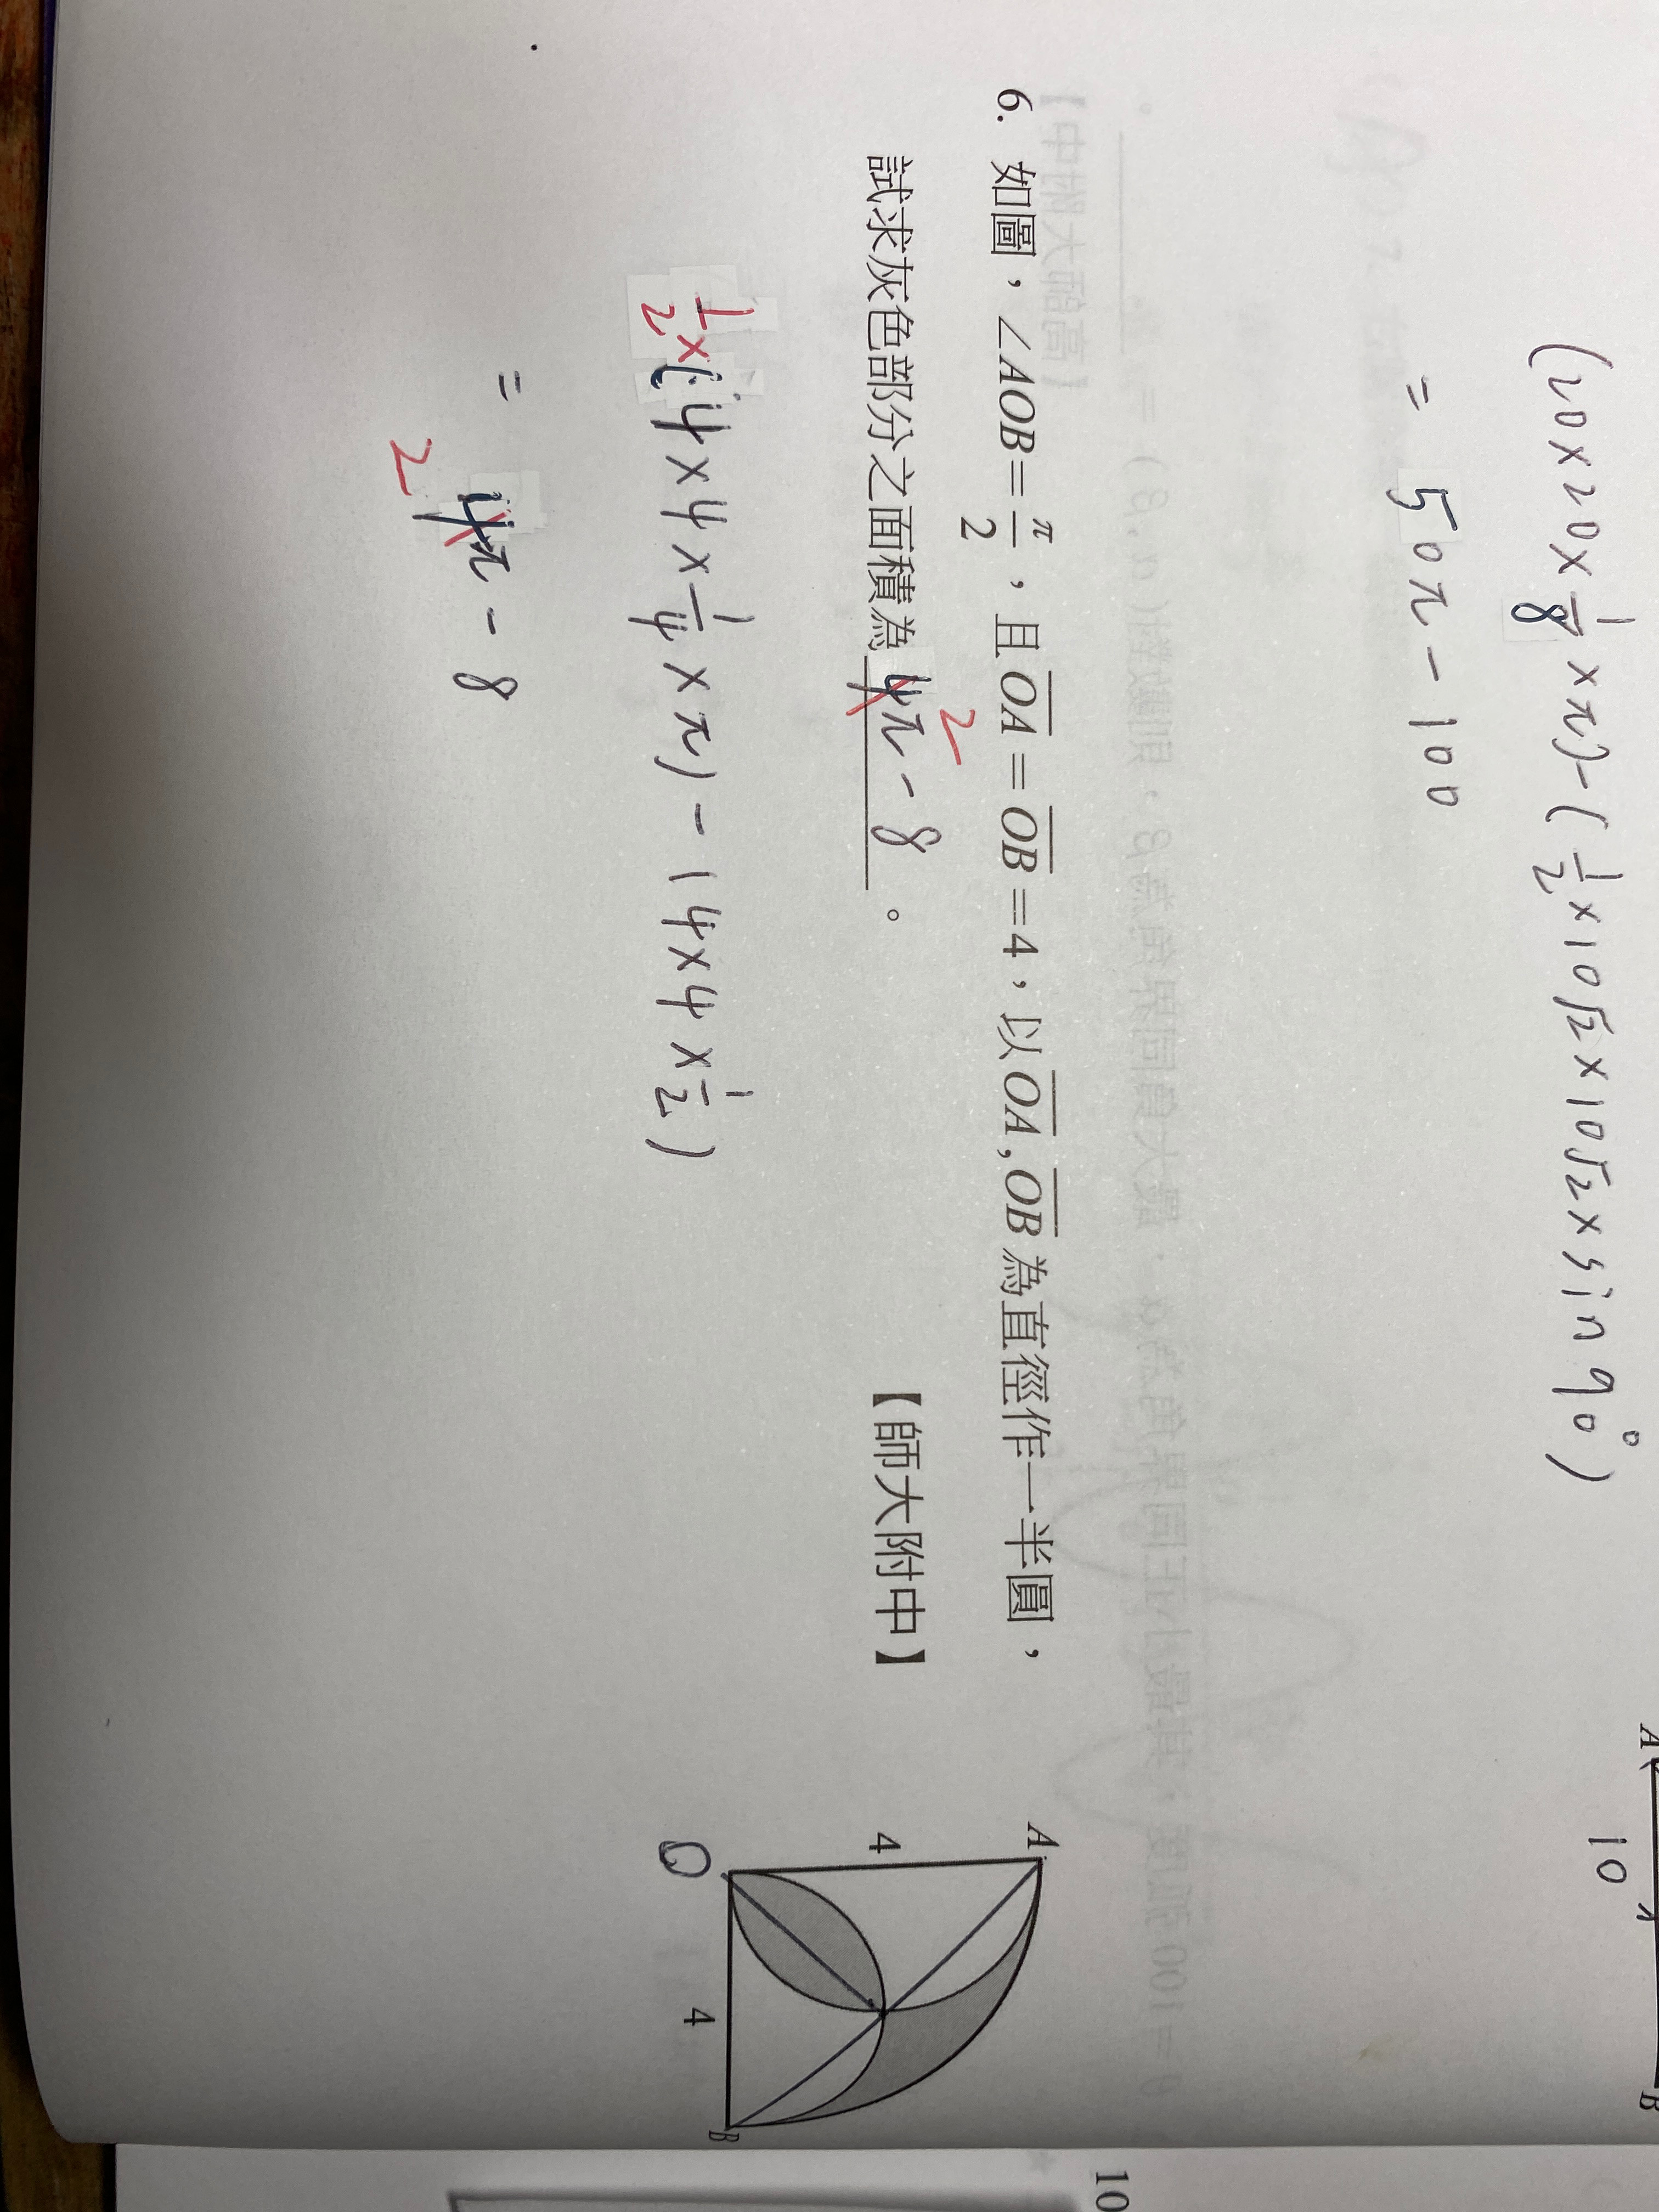 (20×20×1/8×π)-(1/2×10√2×10√2×sin90°)
= 50π - 100
A
10
B
6. 如圖，∠AOB=π/2，且OA=OB=4，以OA,OB為直徑作一半圓，
試求灰色部分之面積為 4π - 8 。 【師大附中】
2
1/2×(4×4×1/4×π) - (4×4×1/2)
= 4π - 8
2
A
4
O
4
B
10